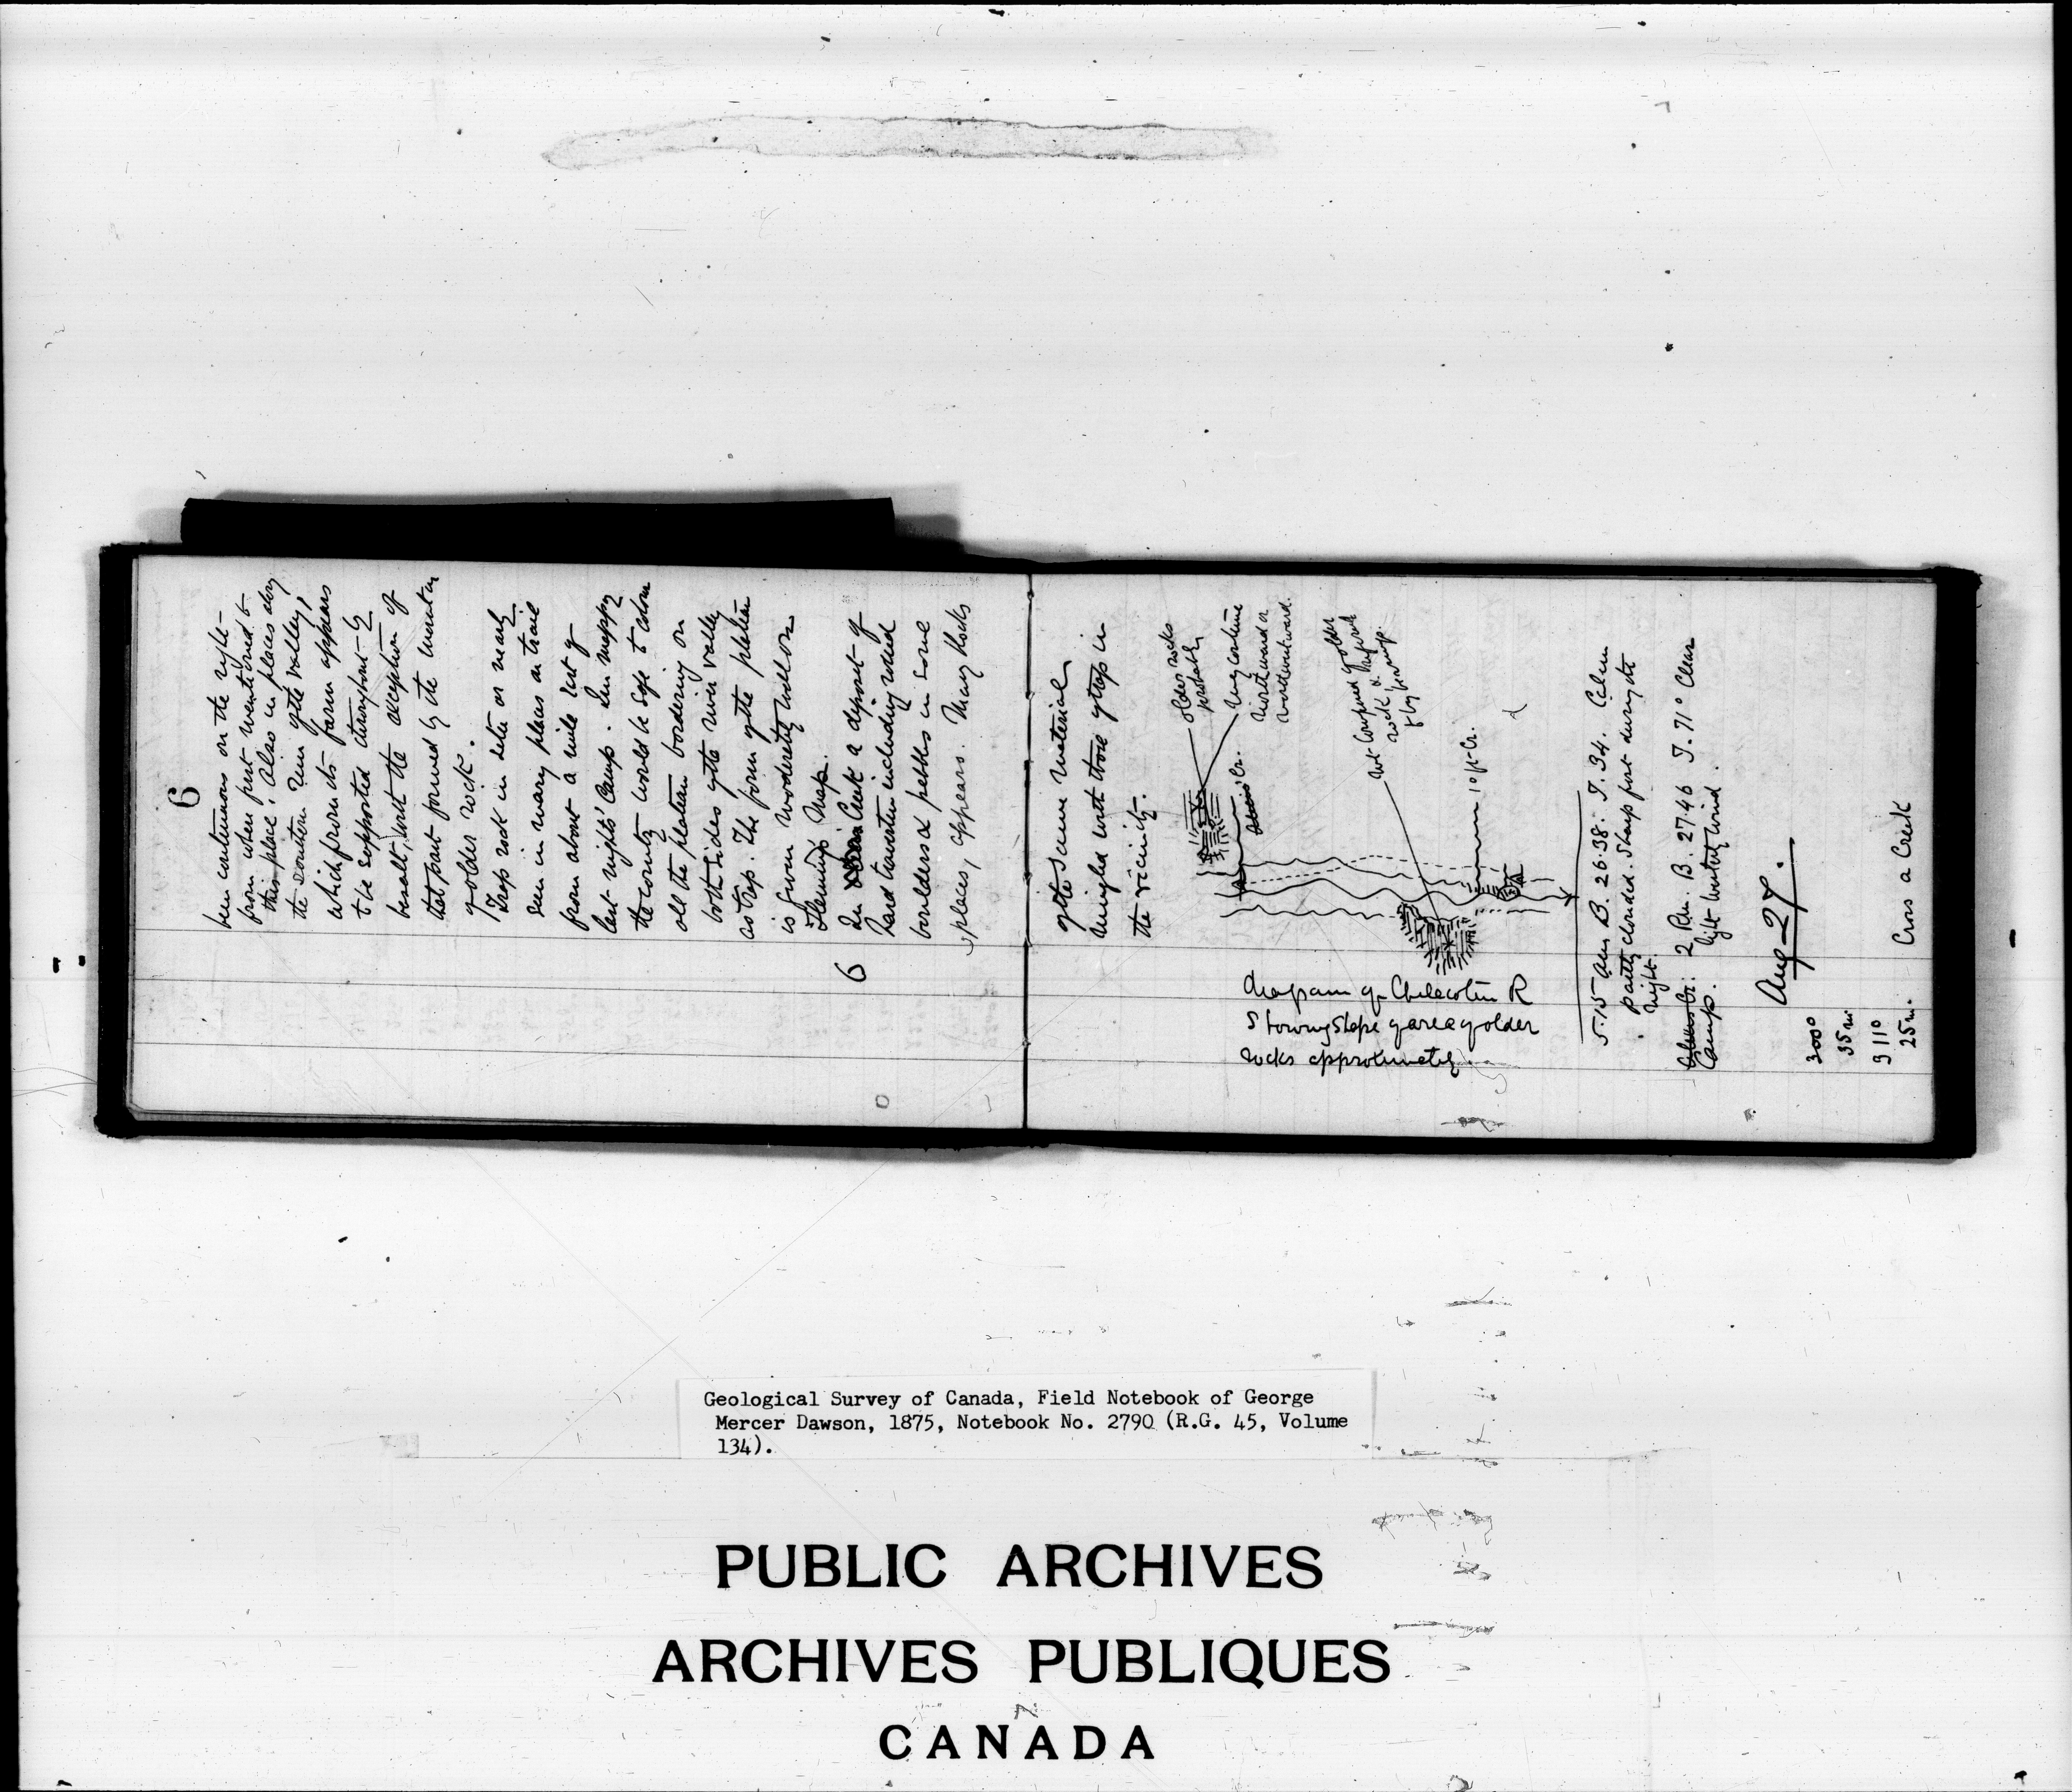 6
been continuous on the right
from when first mentioned to
this place. Also in places along
the southern rim of the valley,
which from its form appears
to be supported throughout by
basalt, with the exception of
that part formed by the mountain
of older rock.
Trap rock in situ or nearly
seen in many places on trail
from about a mile east of
last nights' Camp. In mapping
the country would be safe to colour
all the plateau bordering on
both sides of the river valley
as trap. The form of the plateau
is given moderately well on
Flemings Map.
6
In Creek a deposit of
hard travertin including rolled
boulders & pebbles in some
places, appears. Many blocks
of the same material
mingled with those of trap in
the vicinity.
older rocks
probably
may continue
northward or
northwestward.
Cr.
Mt composed of older
rock
Cr.
diagram of Chilacotin R
showing shape of area of older
rocks approximately.
5.15 am B. 26.38. T. 34. Calm
partly clouded. Sharp frost during the
night.
Camp. 2 P.m. B. 27.46 T. 71° Clear
light westerly wind.
Aug 27.
300°
35 m
311°
25 m. Cross a Creek
Geological Survey of Canada, Field Notebook of George
Mercer Dawson, 1875, Notebook No. 2790 (R.G. 45, Volume
134).
PUBLIC ARCHIVES
ARCHIVES PUBLIQUES
CANADA